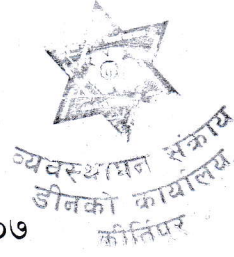 व्यवस्थापन संकाय
डीनको कार्यालय
कीर्तिपुर
०७